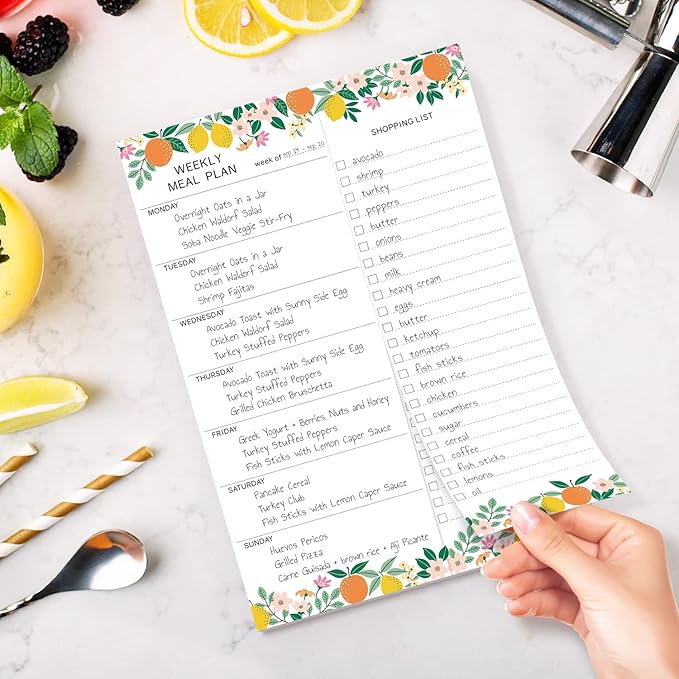 WEEKLY
MEAL PLAN
week of sep. 14 - sep. 20
MONDAY
Overnight Oats in a Jar
Chicken Waldorf Salad
Soba Noodle Veggie Stir-Fry
TUESDAY
Overnight Oats in a Jar
Chicken Waldorf Salad
Shrimp Fajitas
WEDNESDAY
Avocado Toast with Sunny Side Egg
Chicken Waldorf Salad
Turkey Stuffed Peppers
THURSDAY
Avocado Toast with Sunny Side Egg
Turkey Stuffed Peppers
Grilled Chicken Bruschetta
FRIDAY
Greek Yogurt + Berries, Nuts and Honey
Turkey Stuffed Peppers
Fish Sticks with Lemon Caper Sauce
SATURDAY
Pancake Cereal
Turkey Club
Fish Sticks with Lemon Caper Sauce
SUNDAY
Huevos Pericos
Grilled Pizza
Carne Guisada + brown rice + Aji Picante
SHOPPING LIST
avocado
shrimp
turkey
peppers
butter
onions
beans
milk
heavy cream
eggs
butter
ketchup
tomatoes
fish sticks
brown rice
chicken
cucumbers
sugar
cereal
coffee
fish sticks
lemons
oil